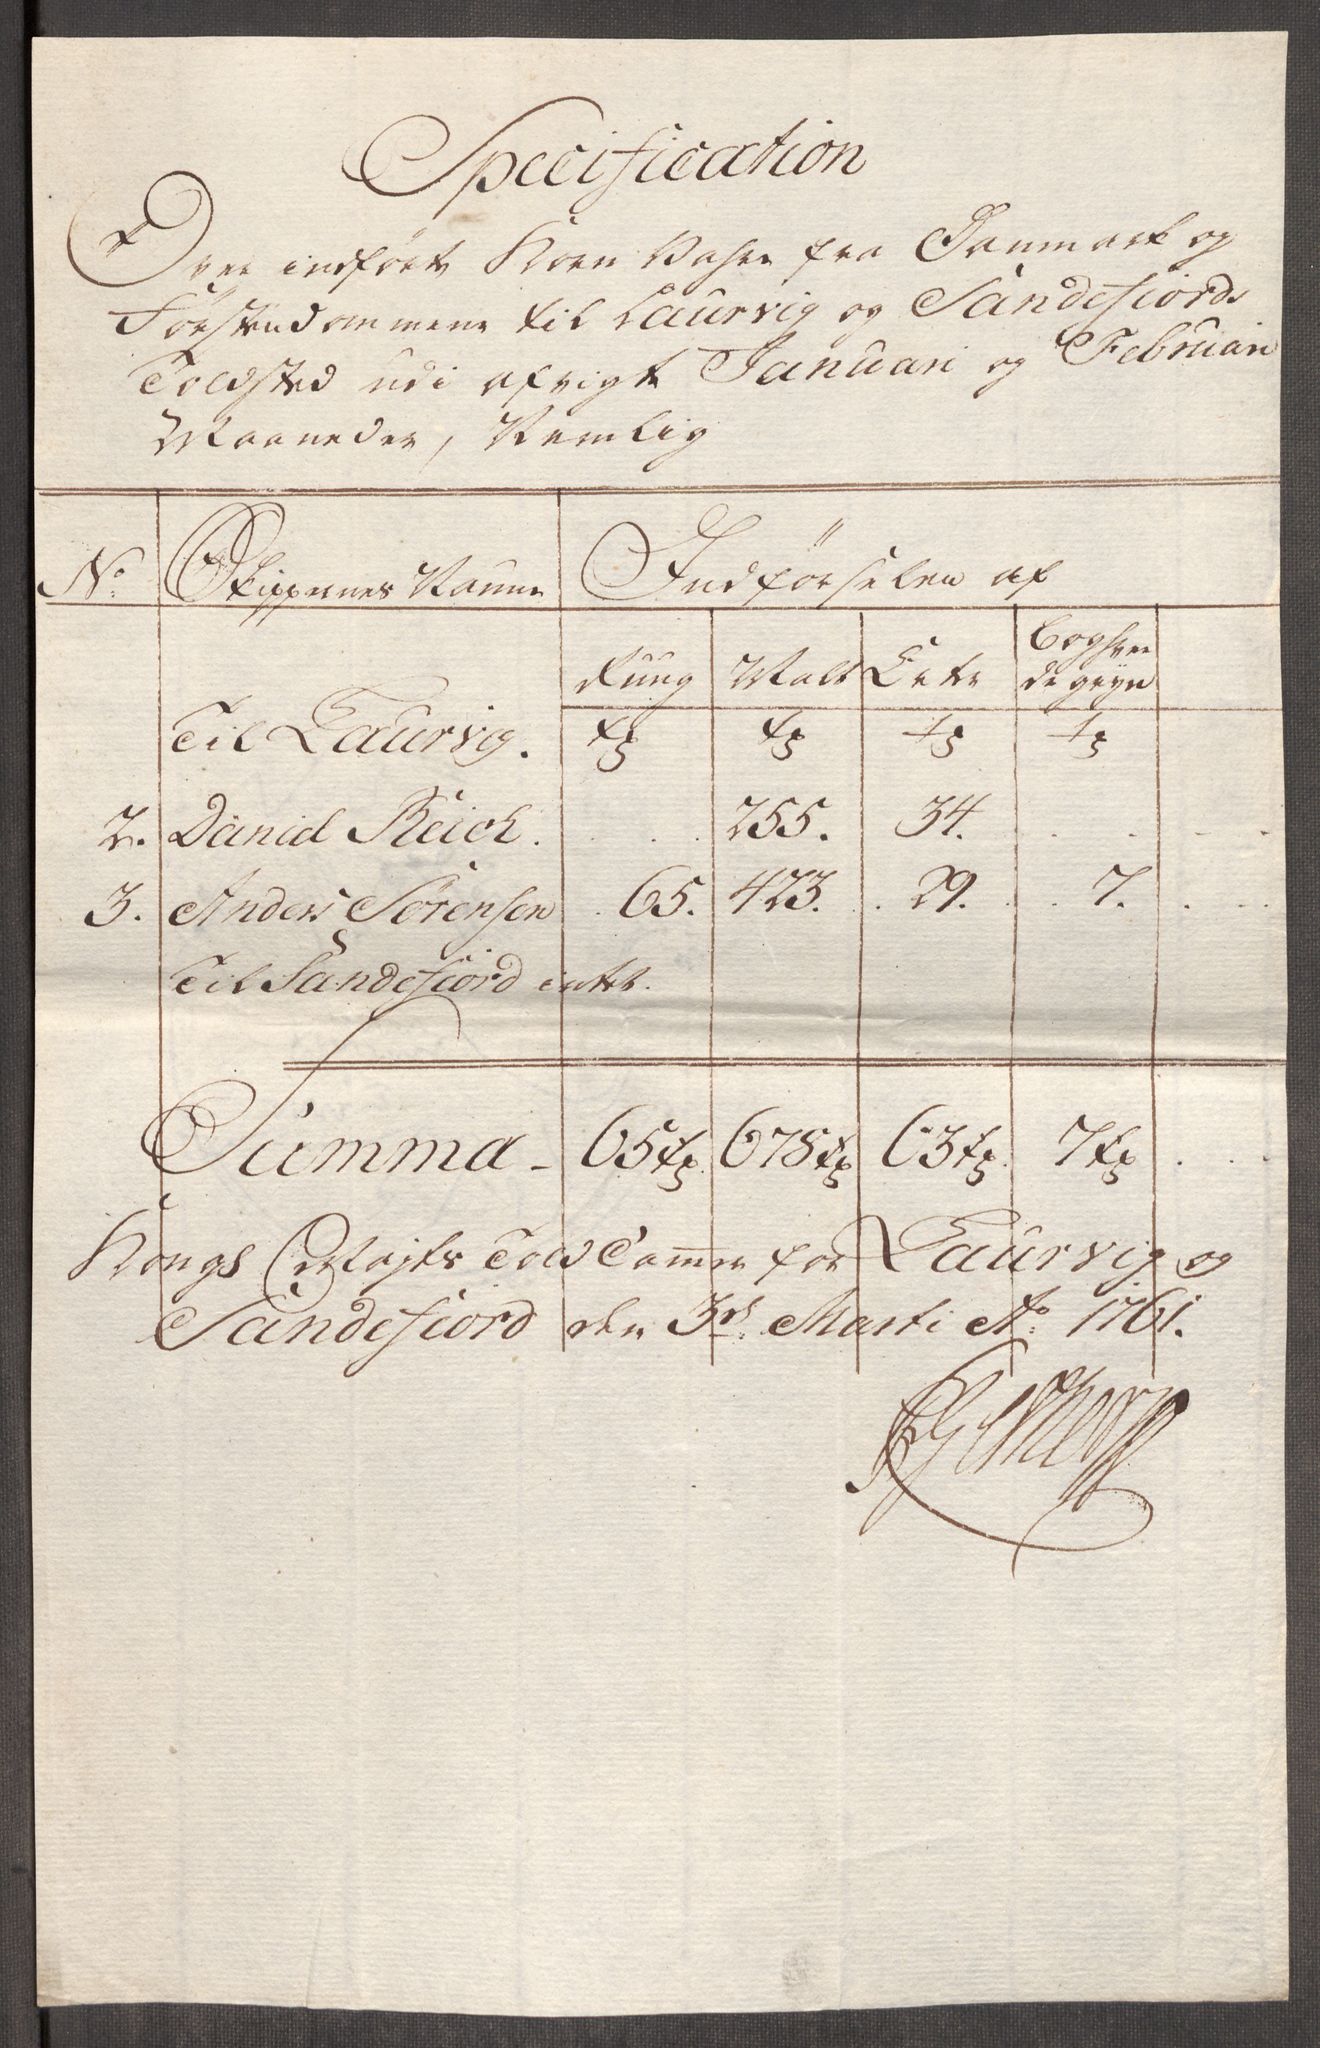 Specification
Over indførte Korn Vahre fra Danmark og
Førstendommene til Laurvig og Sandefiords
Toldsted udi afvigte Januari og Februari
Maaneder, Nemlig
No: Skippernes Naune Indførselen af
Rug Malt Erter Boghve
de gryn
Til Laurvig. tr tr tr tr
2. Daniel Reich. 255. 34.
3. Anders Sørensen 65. 423. 29. 7.
Til Sandefiord intet.
Summa - 65 tr 678 tr 63 tr 7 tr
Kongl Mayts Told Camer for Laurvig og
Sandefiord den 3d Marti Ao: 1761.